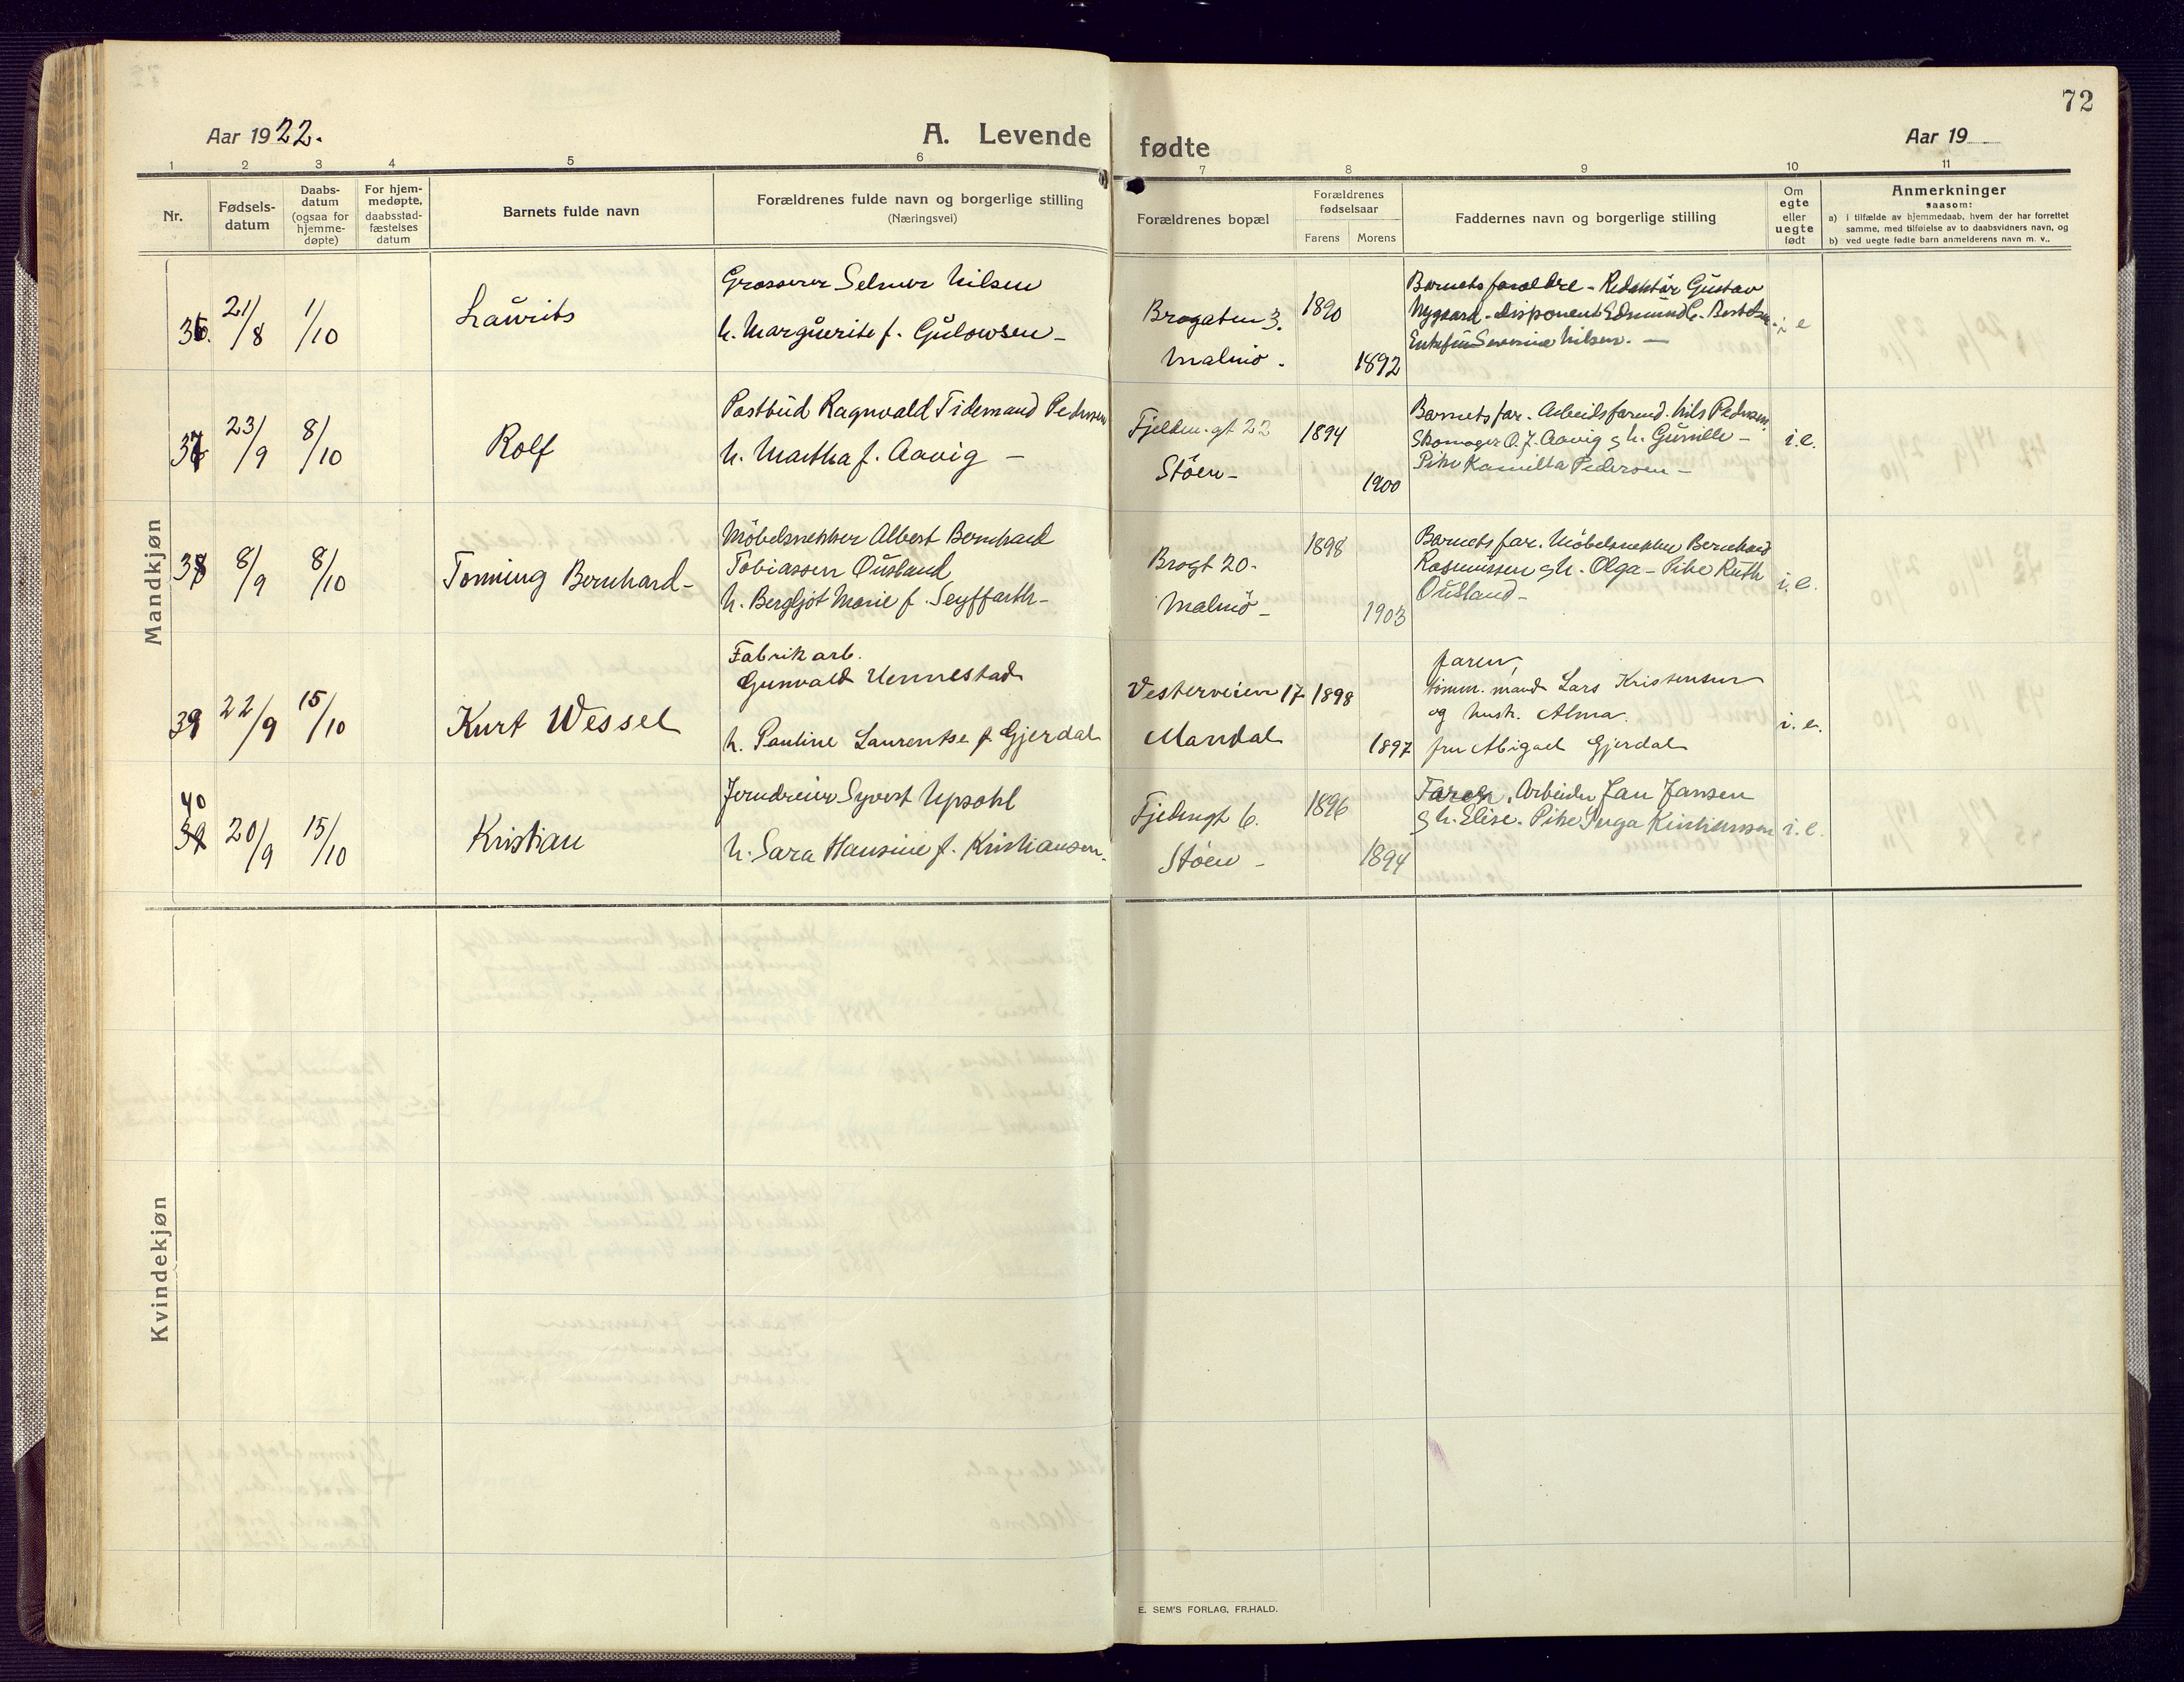 72
Aar 1922.
A. Levende fødte
Aar 19
1 2 3 4 5 6 7 8 9 10 11
Nr.
Fødsels-
datum
Daabs-
datum
(ogsaa for
hjemme-
døpte)
For hjem-
medøpte,
daabsstad-
fæstelses
datum
Barnets fulde navn
Forældrenes fulde navn og borgerlige stilling
(Næringsvei)
Forældrenes bopæl
Forældrenes
fødselsaar
Farens Morens
Faddernes navn og borgerlige stilling
Om
egte
eller
uegte
født
Anmerkninger
saasom:
a) i tilfælde av hjemmedaab, hvem der har forrettet
samme, med tilføielse av to daabsvidners navn, og
b) ved uegte fødte barn anmelderens navn m. v..
Mandkjøn
36. 21/8 1/10
Laurits
Grosserer Selmer Nilsen
h. Marguerite f. Gulowsen -
Brogaten 3.
Malmö.
1890
1892
Barnets forældre - Redaktör Gustav
Nygaard - Disponent Edmund C.
Enkefru Severine Nilsen. -
i e
37 23/9 8/10
Rolf
Postbud Ragnvald Tidemand Pedersen
h. Martha f. Aavig -
Fjelden.gt 22
Stöen -
1894
1900
Barnets far. Arbeidsformd. Nils Pedersen
Skomager O. J. Aavig g h. Gunille -
Pike Kamilla Pedersen -
i.e.
38 8/9 8/10
Tonning Bernhard -
Möbelsnekker Albert Bernhard
Tobiassen Ousland
h. Bergljot Marie f. Seyffarth -
Brogt 20.
Malmö -
1898
1903
Barnets far. Möbelsnekker Bernhard
Rasmussen g h. Olga - Pike Ruth
Ousland -
i.e.
39 22/9 15/10
Kurt Wessel
Fabrik arb.
Gunvald Vennestad
h. Pauline Laurentse f. Gjerdal
Vesterveien 17
Mandal
1898
1897
faren,
tömm. mand Lars Kristensen
og hustr. Alma.
fru Abigael Gjerdal
i. e.
40
39 20/9 15/10
Kristian
Jerndreier Syvert Upsahl
h. Sara Hansine f. Kristiansen.
Fjeldengt 6.
Stöen -
1896
1894
Faren, Arbeider Jan Jansen
g h. Elise. Pike Inga Kristiansen
i. e.
Kvindekjøn
E. SEM'S FORLAG, FR.HALD.